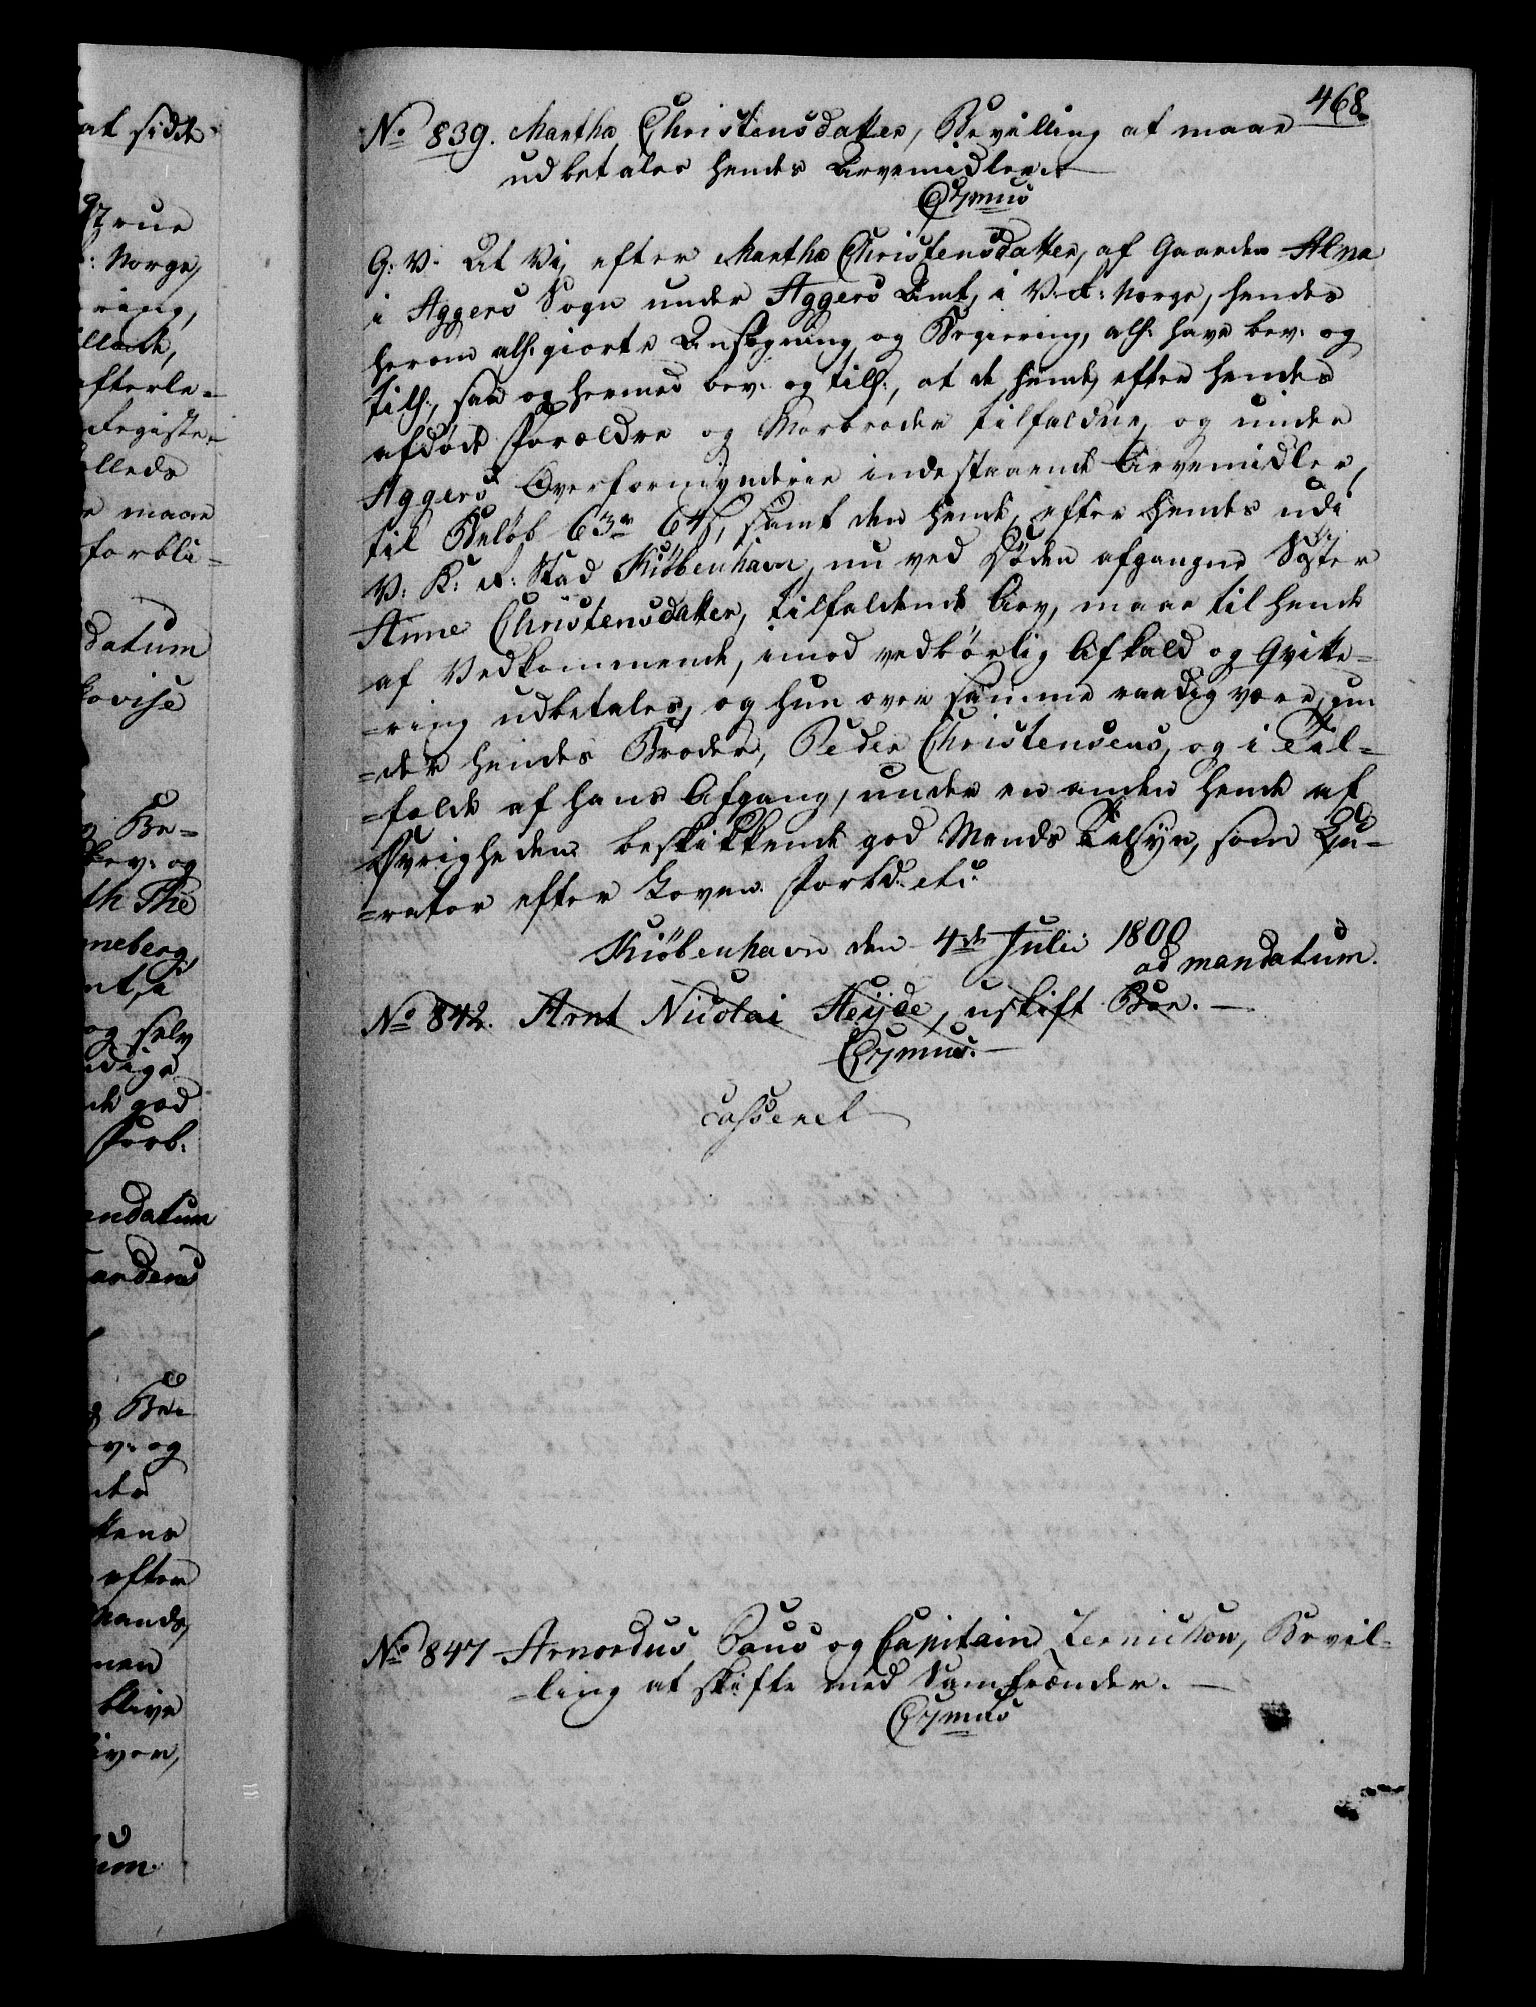 468.
No 839. Martha Christensdatter, Bevilling at maae
udbetales hendes Arvemidler.
Gymus
G: V. At Vi, efter Martha Christensdatter, af Gaarden Alna
i Aggers Sogn under Aggers Amt, i V. R: Norge, hendes
herom alh: giorte Ansøgning og Begiering, alh: have bev: og
tilh:, saa og hermed bev: og tilh:, at de hende, efter hendes
afdøde Forældre og Morbroder tilfaldne, og under
Aggers Overformynderie indestaaende Arvemidler,
til Beløb 63 rd 64 s, samt den hende, efter hendes udi
V: K: R: Stad Kiøbenhavn, nu ved Døden afgangne Søster
Anne Christensdatter, tilfaldende Arv, maae til hende
af Vedkommende, imod vedbørlig Afkald og Qvitte=
=ring udbetales, og hun over samme raadig være, un
=der hendes Broder, Peder Christensens, og i Til=
=fælde af hans Afgang, under en anden hende af
Øvrigheden beskikkende god Mands Tilsyn, som Cu=
=rator efter Loven. Forbd: etc:
Kiøbenhavn den 4de Julii 1800
ad mandatum.
No 842. Arnt Nicolai Heyde, uskift Boe.
Gymus.
casseret
No 847 Arnordus Paus og Capitain Zernichow, Bevil=
=ling at skifte med Samfrænder.
Gymus